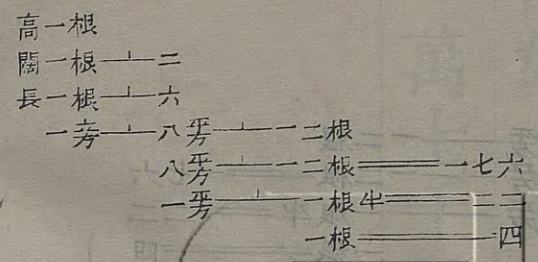 高一根
闊一根⊥二
長一根⊥六
一立方⊥八平方⊥一二根
八平方⊥一二根＝一七六
一平方⊥一根半＝二二
一根＝四